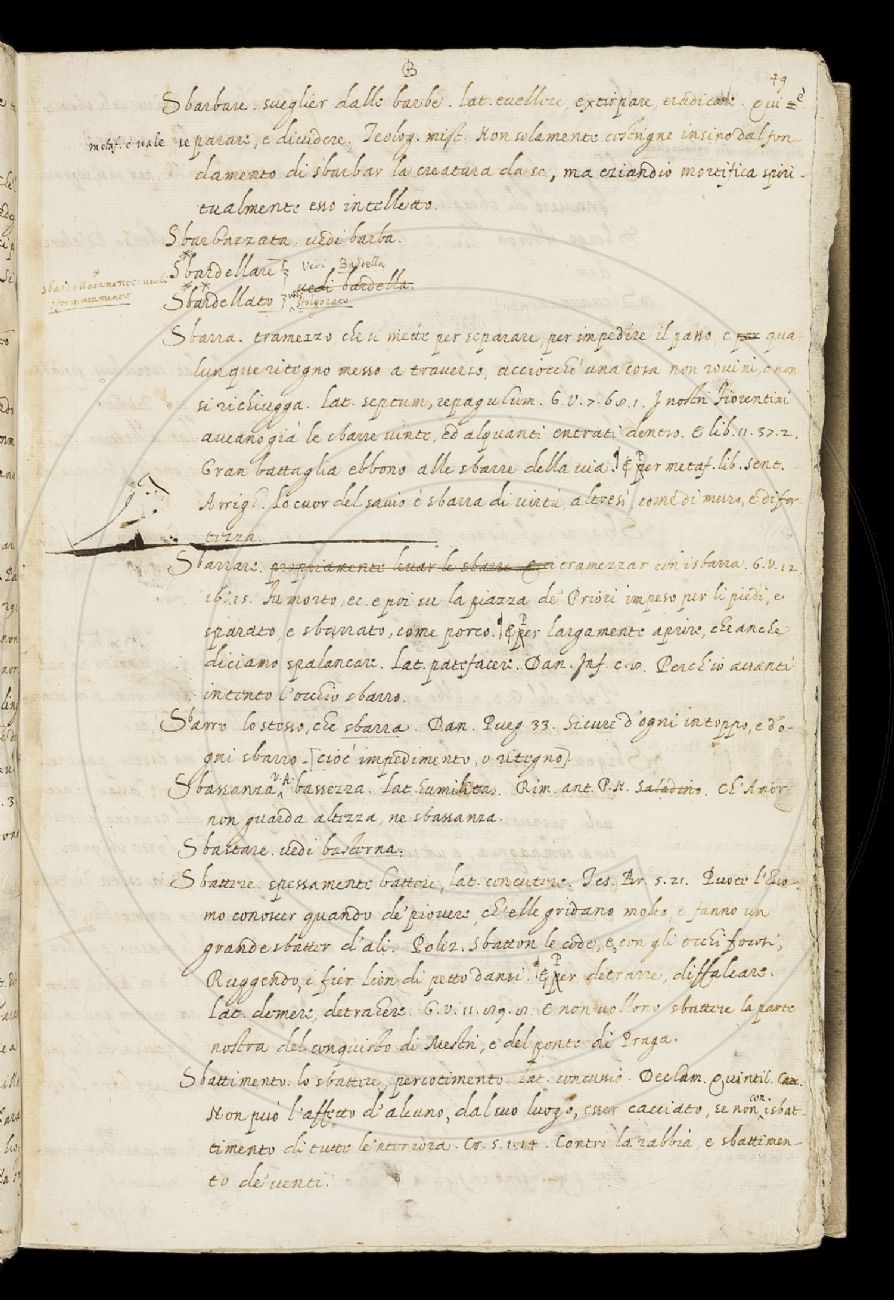 B
49
Sbarbare. sveglier dalle barbe. Lat. evellere, extirpare, eradicare. Qui è
metaf. e vale separare, e dividere. Teolog. mist. Non solamente costrigne insino dal fon-
damento di sbarbar la creatura da se, ma eziandio mortifica spiri-
tualmente esso intelletto.
Sbarbazzata. vedi barba.
Sbardellare vedi Bardella
vedi bardella.
sbardellatamente vedi
sformatamente
Sbardellato
Sbarra. tramezzo che si mette per separare, per impedire il passo, e per qua-
lunque ritegno messo a traverso, acciocche una cosa non rovini, o non
si richiugga. Lat. septum, repagulum. G. V. 7. 68. 1. I nostri Fiorentini
aveano già le sbarre vinte, ed alquanti entrati dentro. E lib. 11. 37. 2.
Gran battaglia ebbono alle sbarre della via. E per metaf. lib. sent.
Arrigh. Lo cuor del savio è sbarra di virtù, altresì come di muro, e di for-
tezza.
Sbarrare. propriamente levar le sbarre tramezzar con isbarra. G. V. 12.
16. 15. Fu morto, ec. e poi su la piazza de' Priori impeso per li piedi, e
sparato, e sbarrato, come porco. E per largamente aprire, che anche
diciamo spalancare. Lat. patefacere. Dan. Inf. c. 8. Perch'io avanti
intento l'occhio sbarro.
Sbarro lo stesso, che sbarra. Dan. Purg 33. Sicure d'ogni intoppo, e d'o-
gni sbarro. [cioè impedimento, o ritegno]
Sbassanza V. A. bassezza. Lat. humilitas. Rim. ant. P. N. Saladino. Ch' Amor
non guarda altezza, ne sbassanza.
Sbastare. vedi basterna.
Sbattere. spessamente battere, lat. concutere. Tes. Br. 5. 21. Puote l'huo-
mo conoscer quando de' piovere, ch'elle gridano molto, e fanno un
grande sbatter d'ali. Poliz. Sbatton le code, e con gli occhi focosi,
Ruggendo, i fier lion, di petto dansi. E per detrarre, diffalcare.
Lat. demere, detrahere. G. V. 11. 89. 8. E non vollono sbattere la parte
nostra del conquisto di Mestri, e del ponte di Praga.
Sbattimento. lo sbattere, percotimento. Lat. concussio. Declam. Quintil. Com.
Non può l'affetto d'alcuno, dal suo luogo, esser cacciato, se non con isbat-
timento di tutte le 'nteriora. Cr. 5. 1. 14. Contro la rabbia, e sbattimen-
to de' venti.